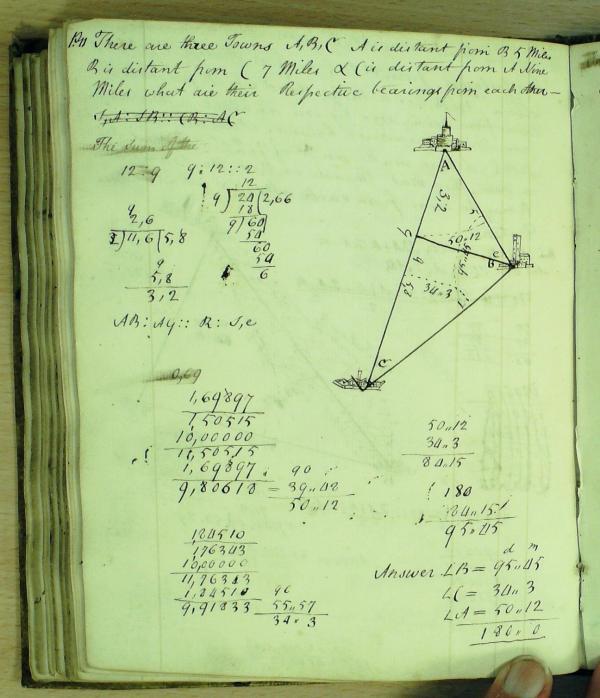 There are three Towns A, B, C A is distant from B 5 Miles
B is distant from C 7 Miles & C is distant from A Nine
Miles what are their Respective bearings from each other—
The Sum of the
12 : 9 9 : 12 :: 2
12
9) 24 (2,66
18
9) 60
54
60
54
6
2,6
2) 11,6 (5,8
9
5,8
3,2
AB : AG :: R : S, c
A
3,2
5
G
50,,12
B
9
5,8
34,,3
7
C
0,69
1,69897
1,50515
10,00000
11,50515
1,69897
9,80618
90
= 39,,48
50,,12
184510
176343
10,00000
11,76343
1,84510
9,91833
90
55,,57
34,,3
50,,12
34,,3
84,,15
180
84,,15
95,,45
d m
Answer ∠B = 95,,45
∠C = 34,,3
∠A = 50,,12
180,,0